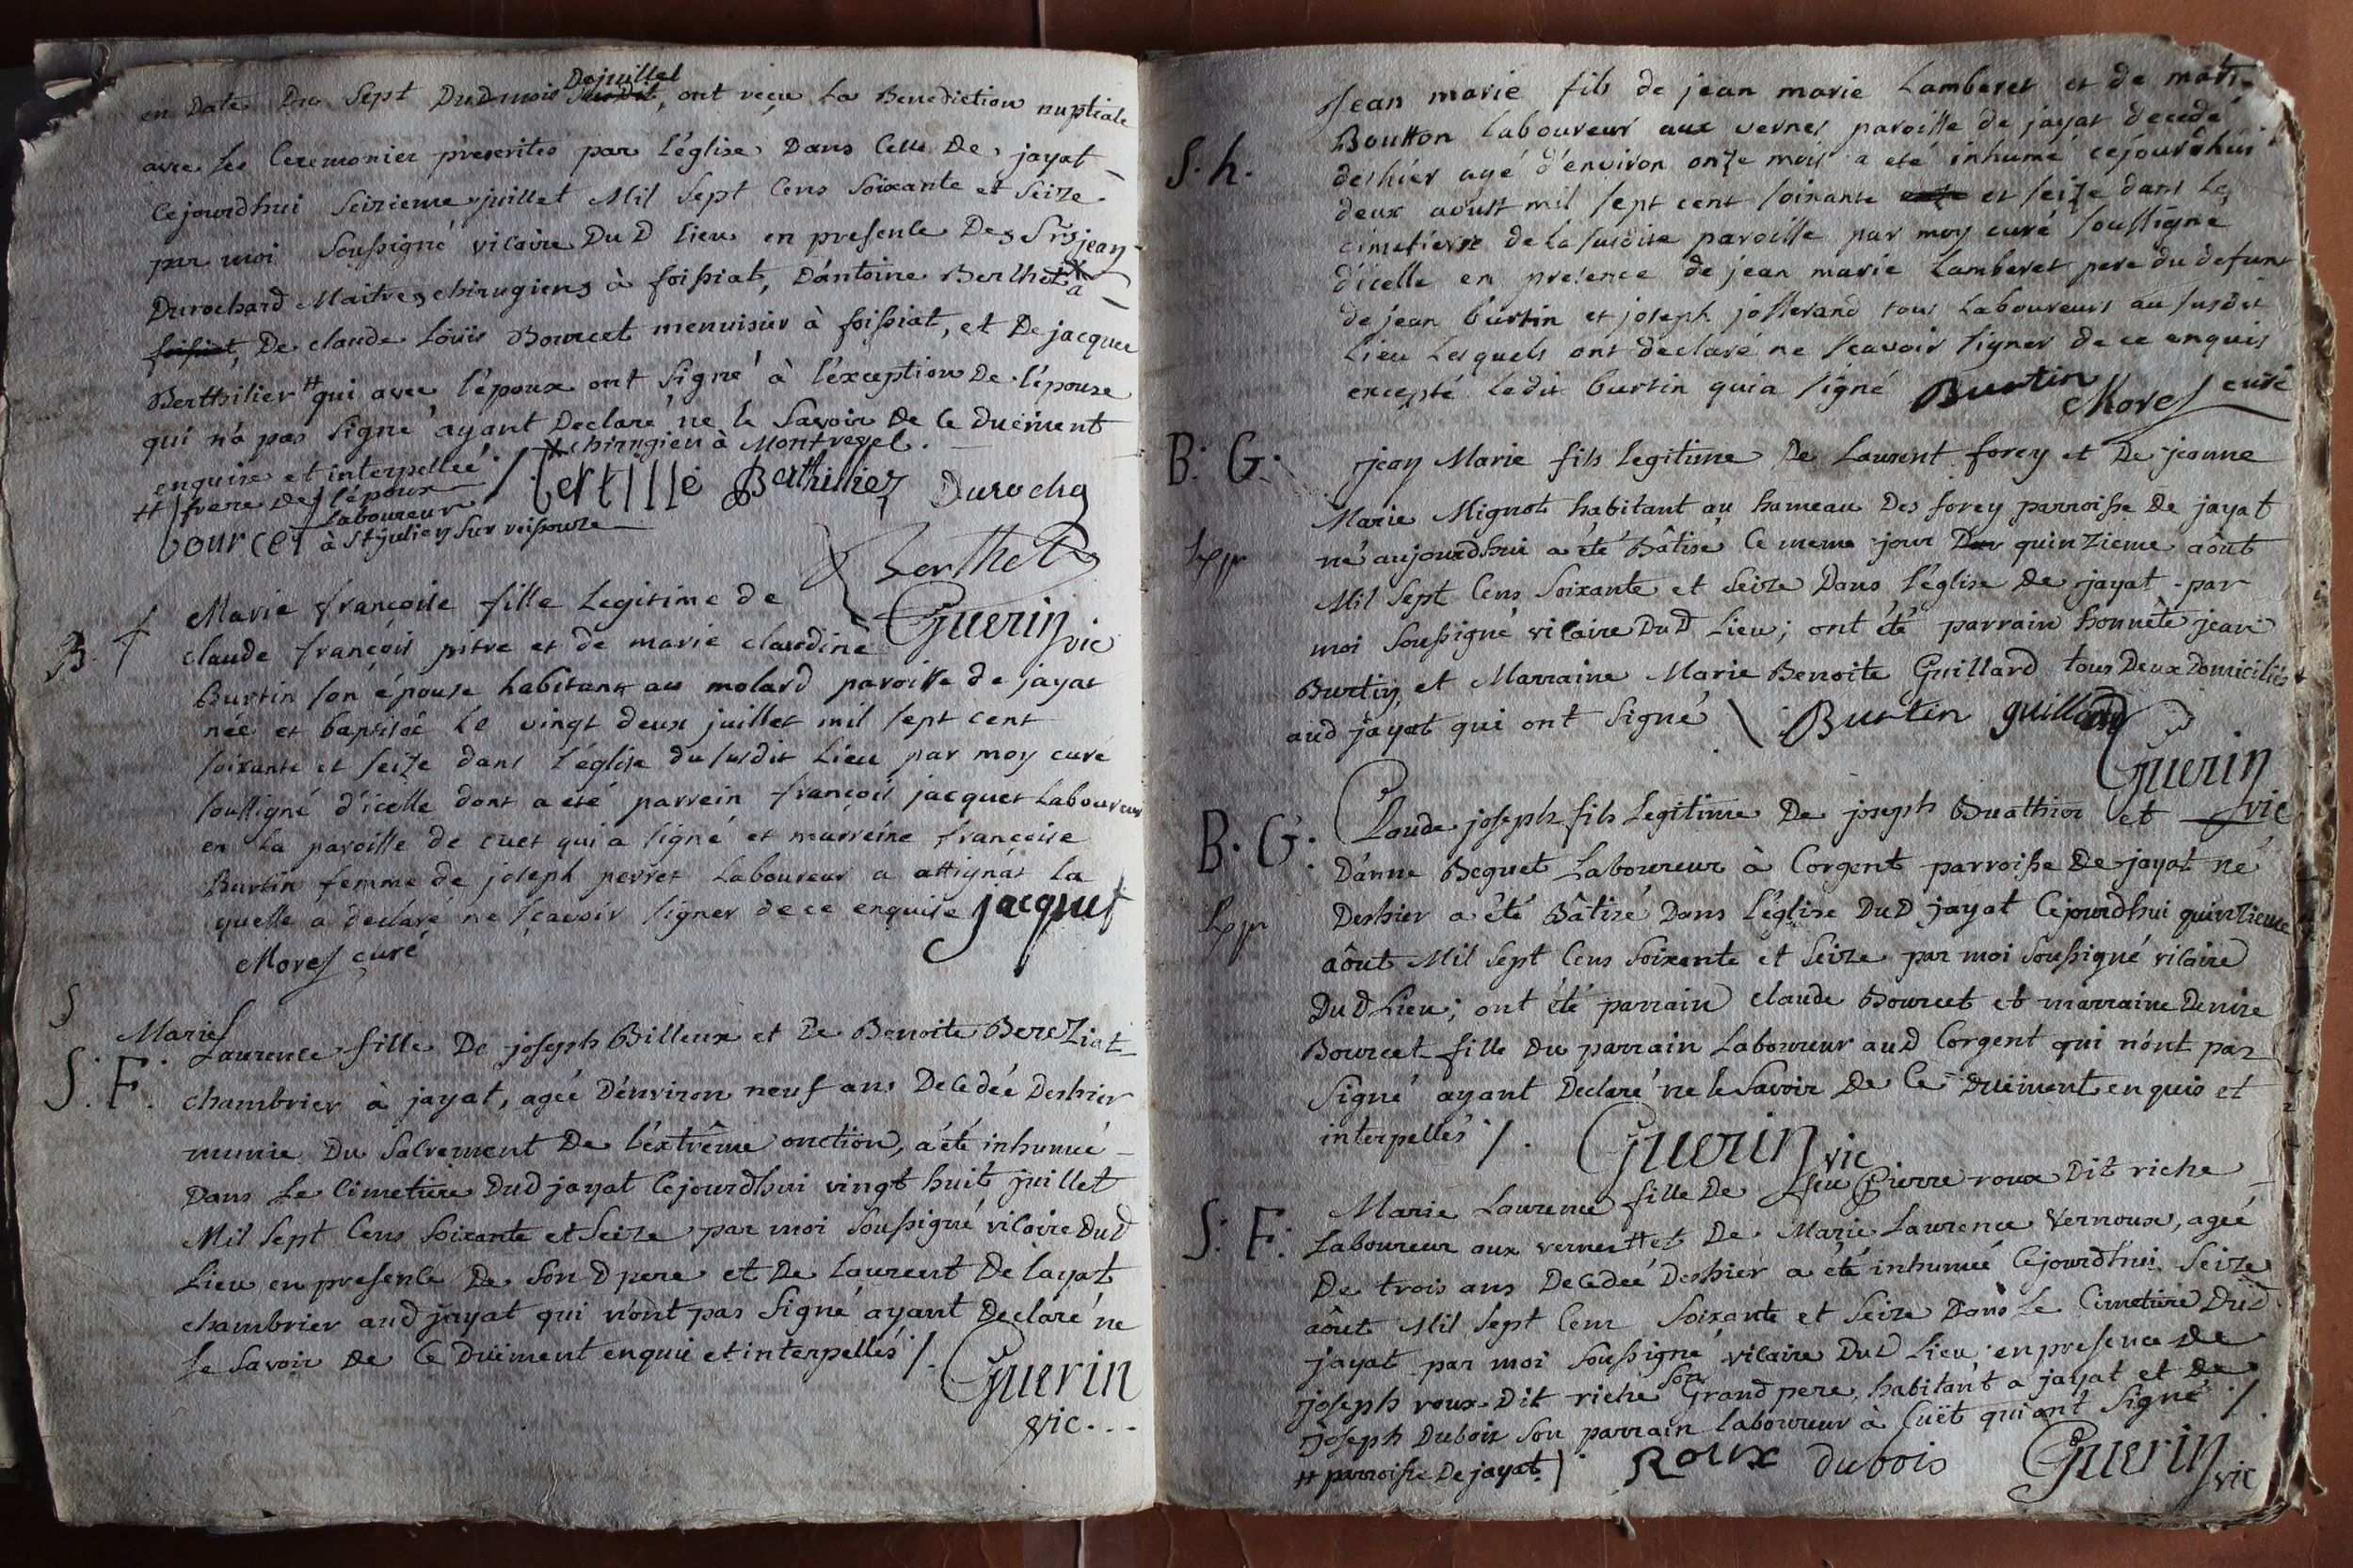 Dejuillet
en Date Du Sept DuDmois susDit, ont reçu La Benediction nuptiale
avec les Ceremonies prescrites par l'église Dans Celle De jayat
Cejourdhui Seizieme juillet Mil Sept Cens Soixante et Seize
par moi Soussigné vicaire Du D Lieu en presence Des Srs jean
Durochard Maitres chirugiens à foissiat, D'antoine Berthet X a
foissiat, De claude Loüis Bourcet menuisier à foissiat, et De jacque
Berthilier # qui avec l'époux ont Signé à l'éxception De l'épouse
qui n'a pas Signé ayant Declaré ne le Savoir De Ce Duëment
enquise et interpellée / X chirugien à Montrevel.
# frere De l'époux
Laboureur
à St julien Sur reissouze
bourcet Berthillier Durocha
Berthet
Guerin vic
B. f
Marie françoise fille Legitime de
claude françois pitre et de marie claudine
Burtin son épouse habitant au molard paroisse de jayat
née et baptisée le vingt deux juillet mil sept cent
soixante et seize dans l'église du susdit Lieu par moy curé
soussigné d'icelle dont a eté parrein françois jacquet Laboureur
en La paroisse de cuet qui a signé et marreine françoise
Burtin femme de joseph perret Laboureur a attignat La
quelle a declaré ne sçavoir signer de ce enquise jacquet
Morel curé
S
Marie
S. F.
Laurence fille De joseph Billeux et De Benoite BereZiat
chambrier à jayat, agée D'environ neuf ans Decedée Deshier
munie Du Sacrement De l'éxtrême onction, a été inhumée
Dans Le Cimetiere DuD jayat Cejourdhui vingt huit juillet
Mil Sept Cens Soixante et Seize par moi Soussigné vicaire DuD
Lieu en presence De Son D pere et De Laurent De layat
chambrier auD jayat qui n'ont pas Signé ayant Declaré ne
le Savoir De Ce Duëment enquis et interpellés /.
Guerin
vic...
S. h.
Jean marie fils de jean marie Lamberet et de
Boutton Laboureur aux vernes paroisse de jayat decedé
deshier agé d'environ onze mois a eté inhumé cejourdhui
deux aoust mil sept cent soixante et seize dans Le
cimetierre de la susdite paroisse par moy curé soussigné
d'icelle en presence de jean marie Lamberet pere du defunt
de jean burtin et joseph josserand tous Laboureurs au susdit
Lieu Lesquels ont declaré ne sçavoir signer de ce enquis
excepté Ledit burtin qui a signé Burtin
Morel curé
B. G.
jean Marie fils Legitime De Laurent forey et De jeanne
Marie Mignot habitant au hameau Des forey parroisse De jayat
né aujourdhui a été Bâtisé Ce meme jour quinzieme aôut
Mil Sept Cens Soixante et Seize Dans l'église De jayat par
moi Soussigné vicaire DuD Lieu; ont été parrain honnête jean
Burtin, et Marraine Marie Benoite Guillard tous Deux Domiciliés
auD jayat qui ont Signé \ Burtin guillard
Guerin
vic
B. G.
Claude joseph fils Legitime De joseph Buathier et
D'anne Beguet Laboureur à Corgent parroisse De jayat né
Deshier a été Bâtisé Dans l'église DuD jayat Cejourdhui quinzieme
aôut Mil Sept Cens Soixante et Seize par moi Soussigné vicaire
DuD Lieu; ont été parrain claude Bourcet et marraine Denise
Bourcet fille Du parrain Laboureur auD Corgent qui n'ont pas
Signé ayant Declaré ne le Savoir De Ce Duëment enquis et
interpellés /. Guerin vic
S. F.
Marie Laurence fille De feu Pierre roux Dit riche
Laboureur aux vernes # et De Marie Laurence Vernoux, agée
De trois ans Decedée Deshier a été inhumée Cejourdhui Seize
aôut Mil Sept Cens Soixante et Seize Dans Le Cimetiere DuD
jayat par moi Soussigné vicaire DuD Lieu en presence De
joseph roux Dit riche son Grand pere, habitant a jayat et De
joseph Dubois Son parrain laboureur à Cuët qui ont Signé /
# parroisse De jayat Roux dubois Guerin vic